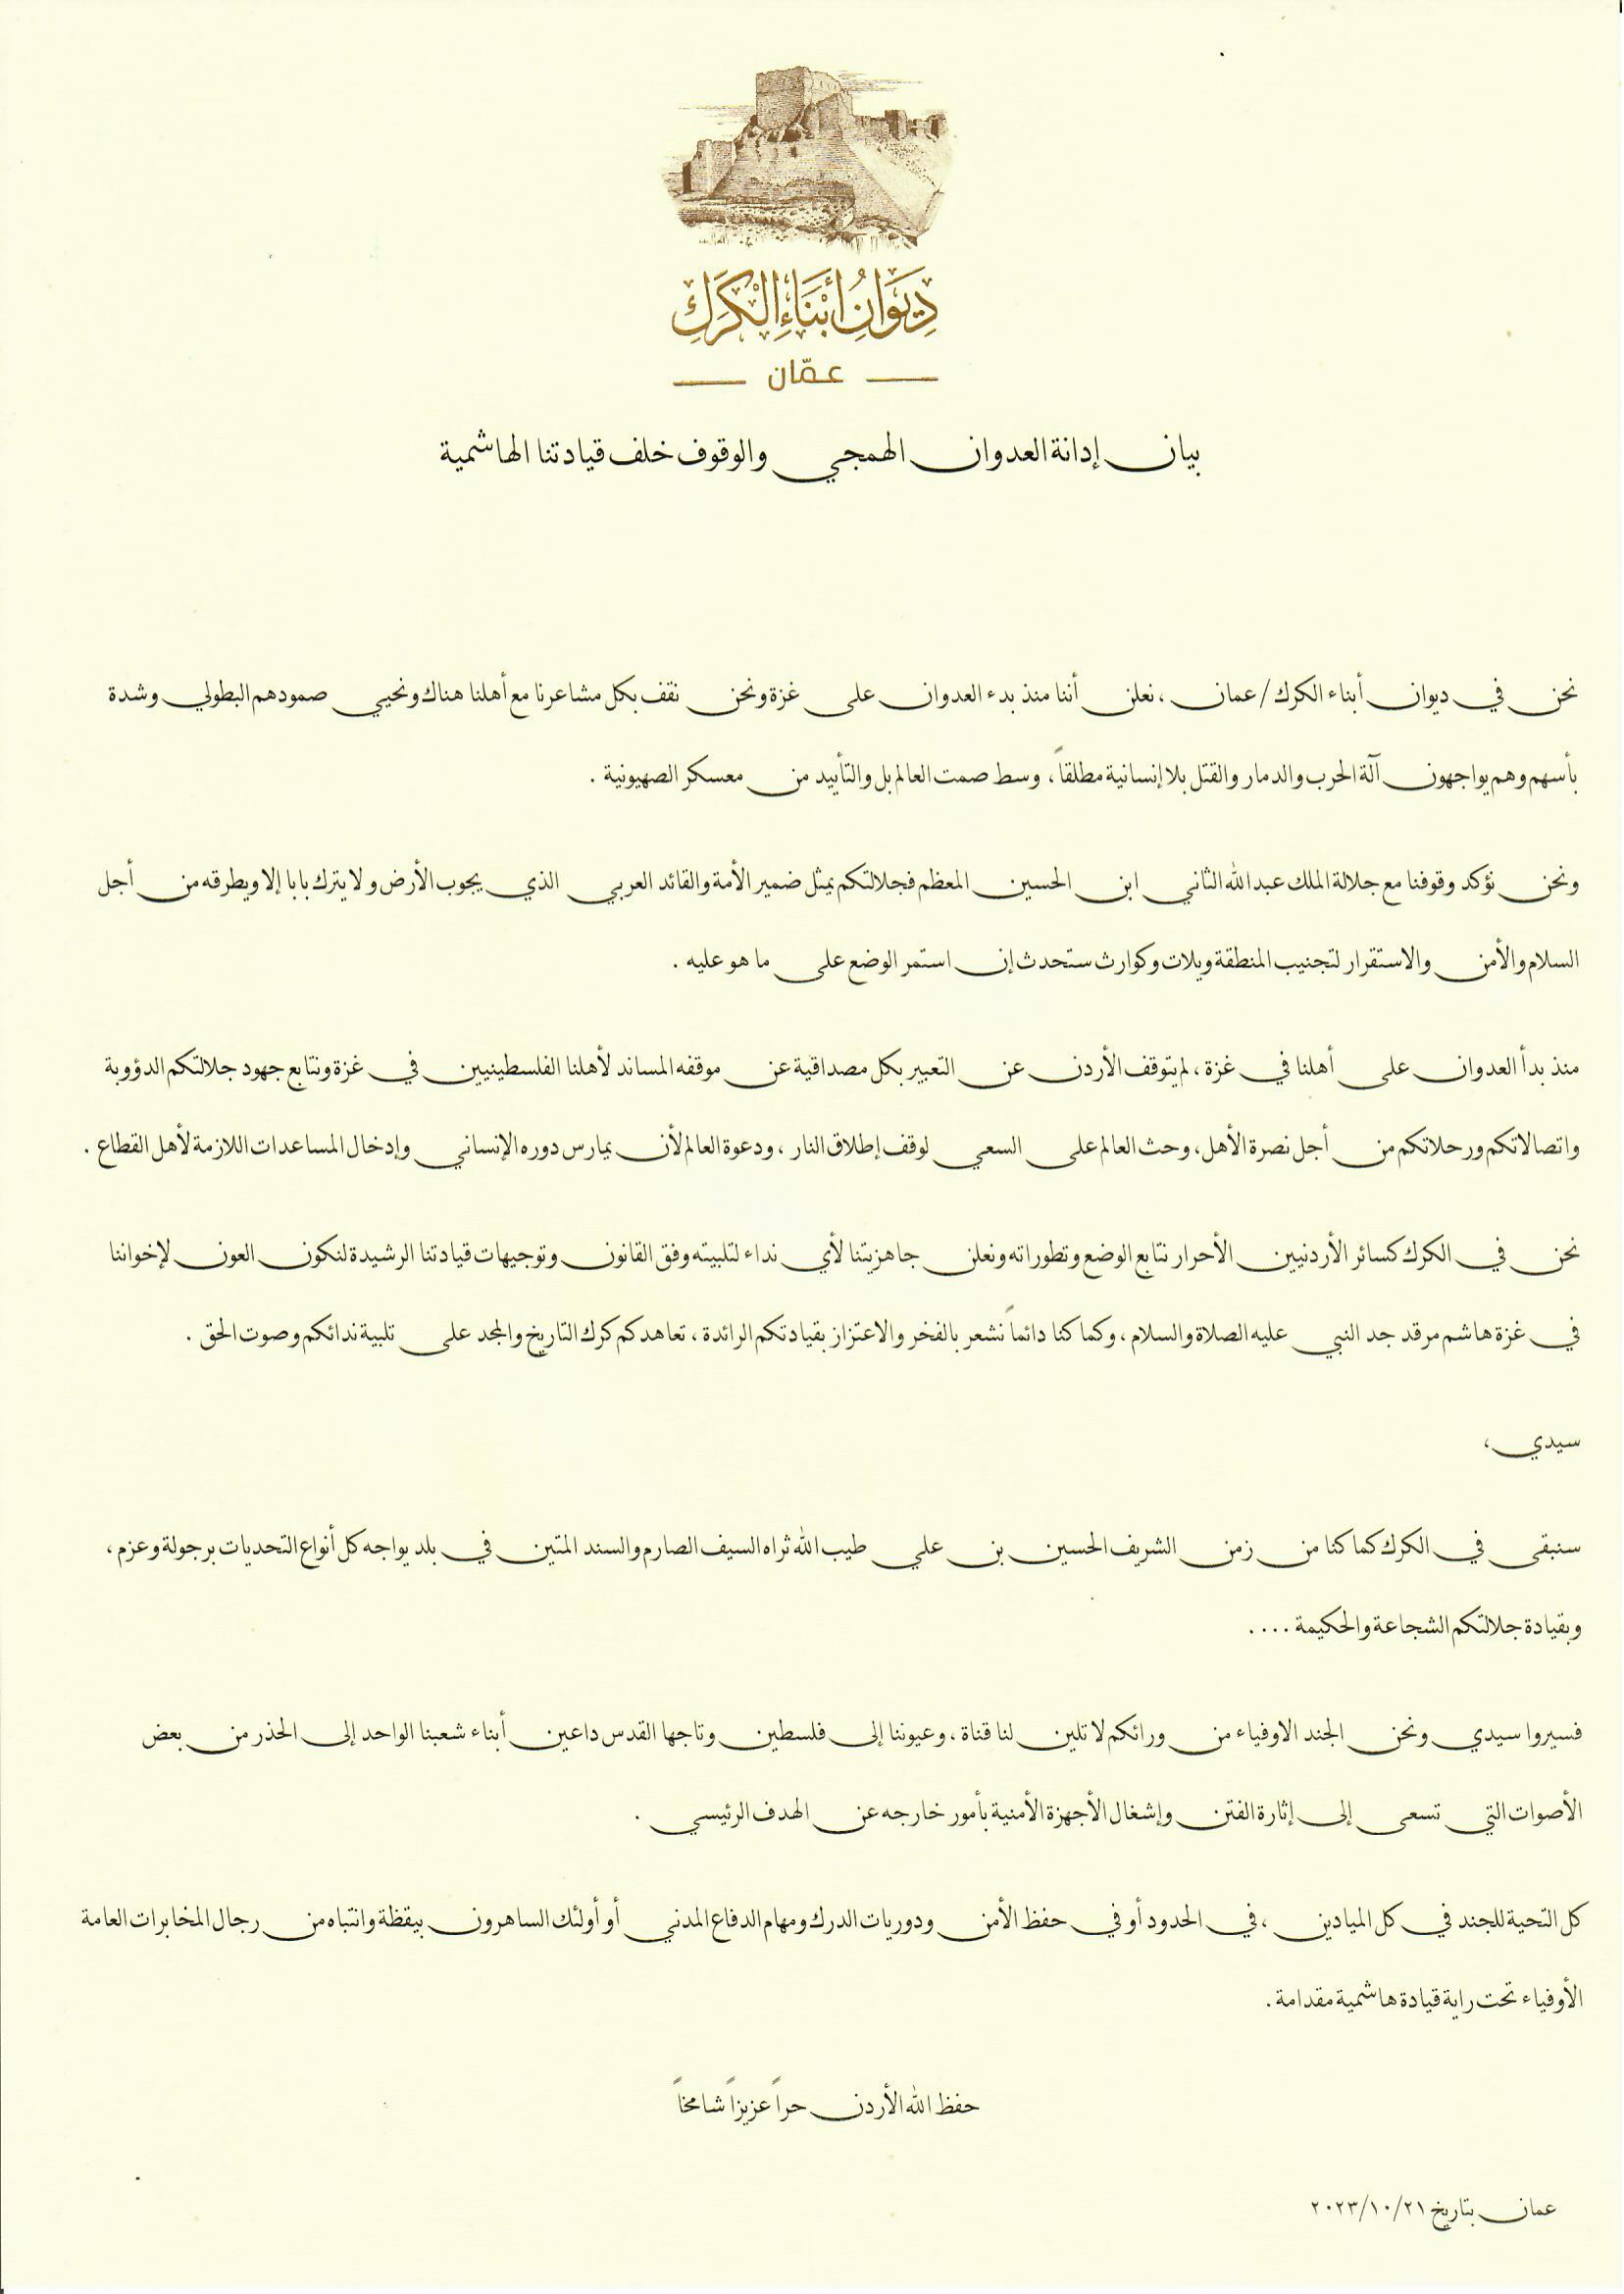 دِيَوَانِ أَبْنَاءِ الْكَرَكِ
عمّان
بيان إدانة العدوان الهمجي والوقوف خلف قيادتنا الهاشمية
نحن في ديوان أبناء الكرك/عمان ، نعلن أننا منذ بدء العدوان على غزة ونحن نقف بكل مشاعرنا مع أهلنا هناك ونحيي صمودهم البطولي وشدة
بأسهم وهم يواجهون آلة الحرب والدمار والقتل بلا إنسانية مطلقاً ، وسط صمت العالم بل والتأييد من معسكر الصهيونية .
ونحن نؤكد وقوفنا مع جلالة الملك عبدالله الثاني ابن الحسين المعظم فجلالتكم يمثل ضمير الأمة والقائد العربي الذي يجوب الأرض ولا يترك بابا إلا ويطرقه من أجل
السلام والأمن والاستقرار لتجنيب المنطقة ويلات وكوارث ستحدث إن استمر الوضع على ما هو عليه .
منذ بدأ العدوان على أهلنا في غزة ، لم يتوقف الأردن عن التعبير بكل مصداقية عن موقفه المساند لأهلنا الفلسطينيين في غزة ونتابع جهود جلالتكم الدؤوبة
واتصالاتكم ورحلاتكم من أجل نصرة الأهل، وحث العالم على السعي لوقف إطلاق النار ، ودعوة العالم لأن يمارس دوره الإنساني وإدخال المساعدات اللازمة لأهل القطاع .
نحن في الكرك كسائر الأردنيين الأحرار نتابع الوضع وتطوراته ونعلن جاهزيتنا لأي نداء لتلبيته وفق القانون وتوجيهات قيادتنا الرشيدة لنكون العون لإخواننا
في غزة هاشم مرقد جد النبي عليه الصلاة والسلام ، وكما كنا دائماً نشعر بالفخر والاعتزاز بقيادتكم الرائدة ، تعاهدكم كرك التاريخ والمجد على تلبية ندائكم وصوت الحق .
سيدي ،
سنبقى في الكرك كما كنا من زمن الشريف الحسين بن علي طيب الله ثراه السيف الصارم والسند المتين في بلد يواجه كل أنواع التحديات برجولة وعزم ،
وبقيادة جلالتكم الشجاعة والحكيمة ....
فسيروا سيدي ونحن الجند الاوفياء من ورائكم لا تلين لنا قناة ، وعيوننا إلى فلسطين وتاجها القدس داعين أبناء شعبنا الواحد إلى الحذر من بعض
الأصوات التي تسعى إلى إثارة الفتن وإشغال الأجهزة الأمنية بأمور خارجه عن الهدف الرئيسي .
كل التحية للجند في كل الميادين ، في الحدود أو في حفظ الأمن ودوريات الدرك ومهام الدفاع المدني أو أولئك الساهرون بيقظة وانتباه من رجال المخابرات العامة
الأوفياء تحت راية قيادة هاشمية مقدامة .
حفظ الله الأردن حراً عزيزاً شامخاً
عمان بتاريخ ٢٠٢٣/١٠/٢١